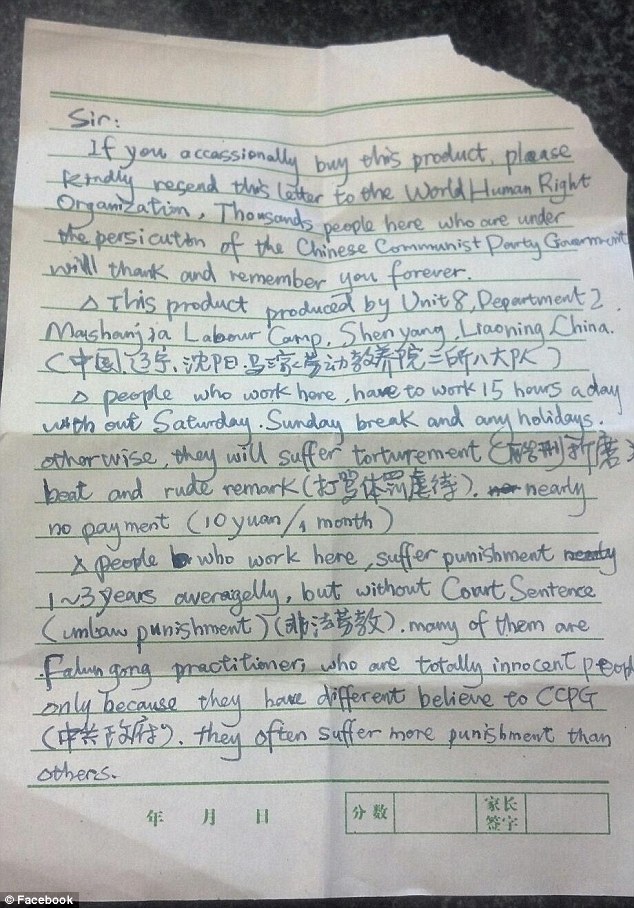 Sir:
If you accassionally buy this product, please
kindly resend this letter to the World Human Right
Organization, Thousands people here who are under
the persicution of the Chinese Communist Party Government
will thank and remember you forever.
△ This product produced by Unit 8, Department 2
Labour Camp, Shenyang, Liaoning, China.
(中国, 辽宁, 沈阳, 马三家劳动教养院二所八大队)
△ people who work here, have to work 15 hours a day
with out Saturday, Sunday break and any holidays.
otherwise, they will suffer torturement (折磨
beat and rude remark (打骂体罚虐待). nearly
no payment (10 yuan/1 month)
△ people who work here, suffer punishment
1~3 years averagelly, but without Court Sentence
(unlaw punishment) (非法劳教). many of them are
Falun gong practitioner, who are totally innocent people
only because they have different believe to CCPG
(中共政府). they often suffer more punishment than
others.
年 月 日 分数 家长签字
Facebook